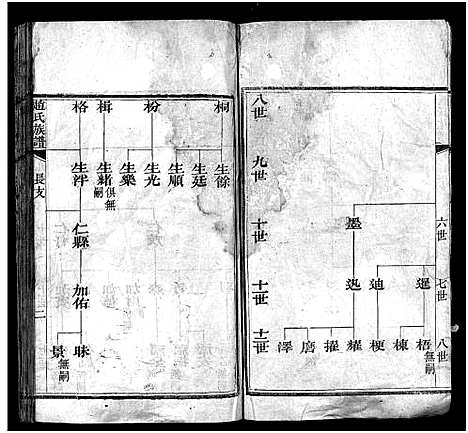 六世
七世
八世
墨
暹
迪
梧無嗣
棟
梗
耀
擢
磨
澤
八世
九世
十世
十一世
十二世
桐
枌
楫
格
生馀
生廷
生順
生光
生樂
生緒俱無嗣
生泮
仁縣
加佑
昧
景無嗣
趙氏族譜
長支
二